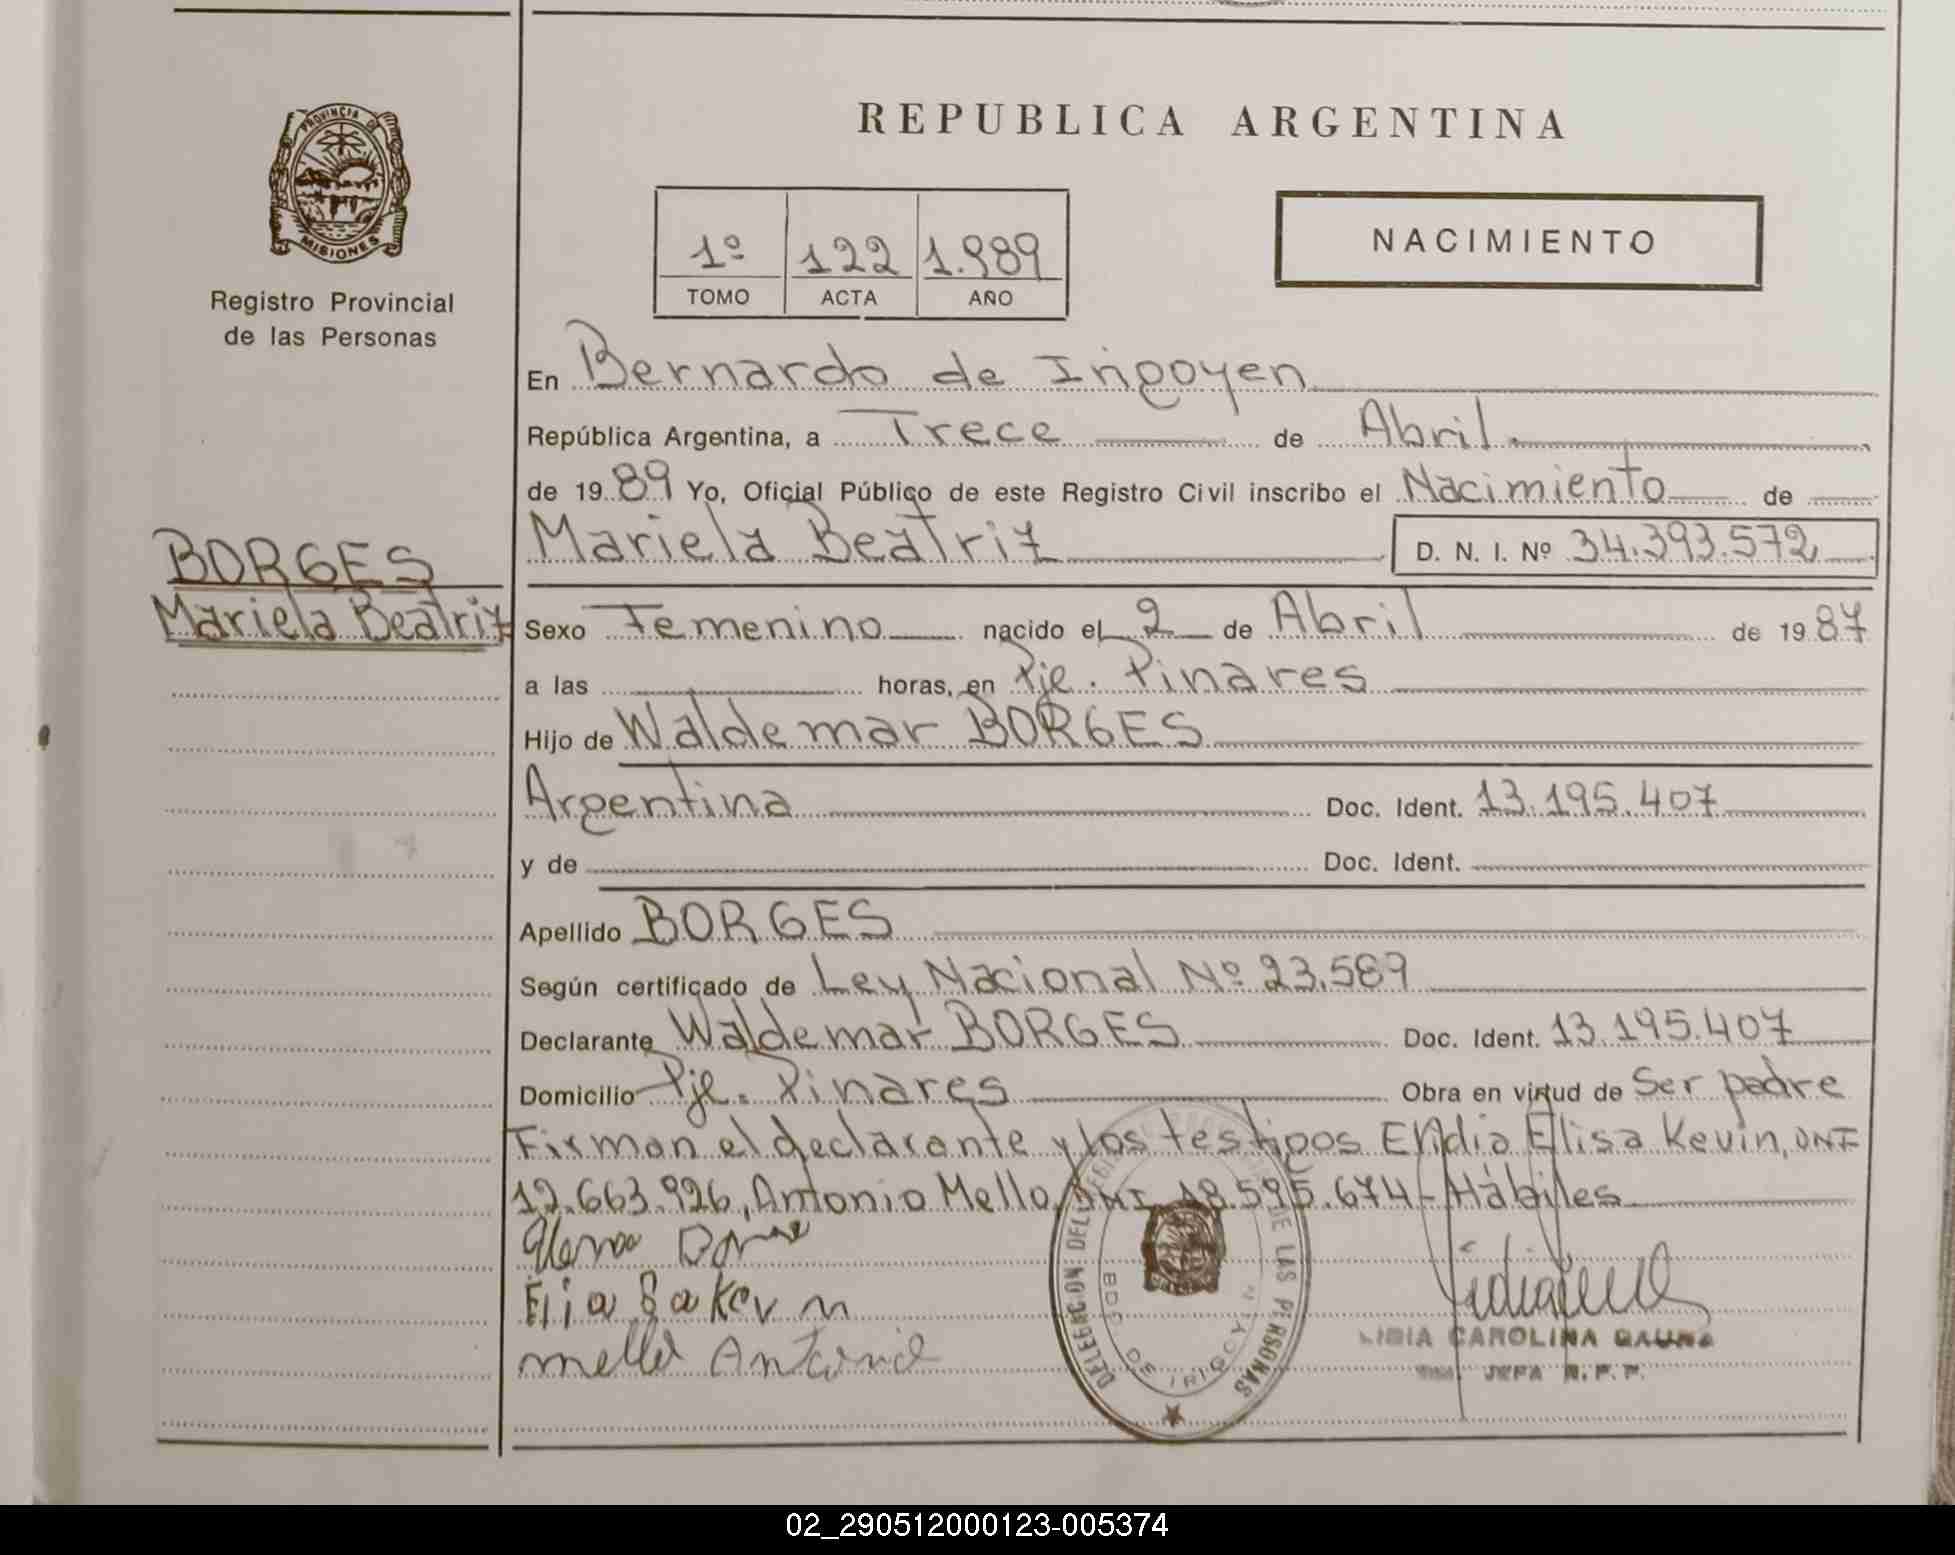 REPUBLICA ARGENTINA
PROVINCIA DE
MISIONES
Registro Provincial
de las Personas
1º 122 1.989
TOMO ACTA AÑO
NACIMIENTO
En Bernardo de Irigoyen
República Argentina, a Trece de Abril
de 19 89 Yo, Oficial Público de este Registro Civil inscribo el Nacimiento de
Mariela Beatriz D. N. I. Nº 34.393.572
BORGES
Mariela Beatriz
Sexo Femenino nacido el 2 de Abril de 19 87
a las horas, en Pje. Pinares
Hijo de Waldemar BORGES
Argentina Doc. Ident. 13.195.407
y de Doc. Ident.
Apellido BORGES
Según certificado de Ley Nacional Nº 23.589
Declarante Waldemar BORGES Doc. Ident. 13.195.407
Domicilio Pje. Pinares Obra en virtud de Ser padre
Firman el declarante y los testigos Elisa Kevin, DNI
12.663.926, Antonio Mello, DNI 18.595.674- Hábiles
mello Antonio
DELEGACION DE LAS PERSONAS
BDO DE IRIGOYEN
CAROLINA GAUNA
JEFA R.P.P.
02_290512000123-005374